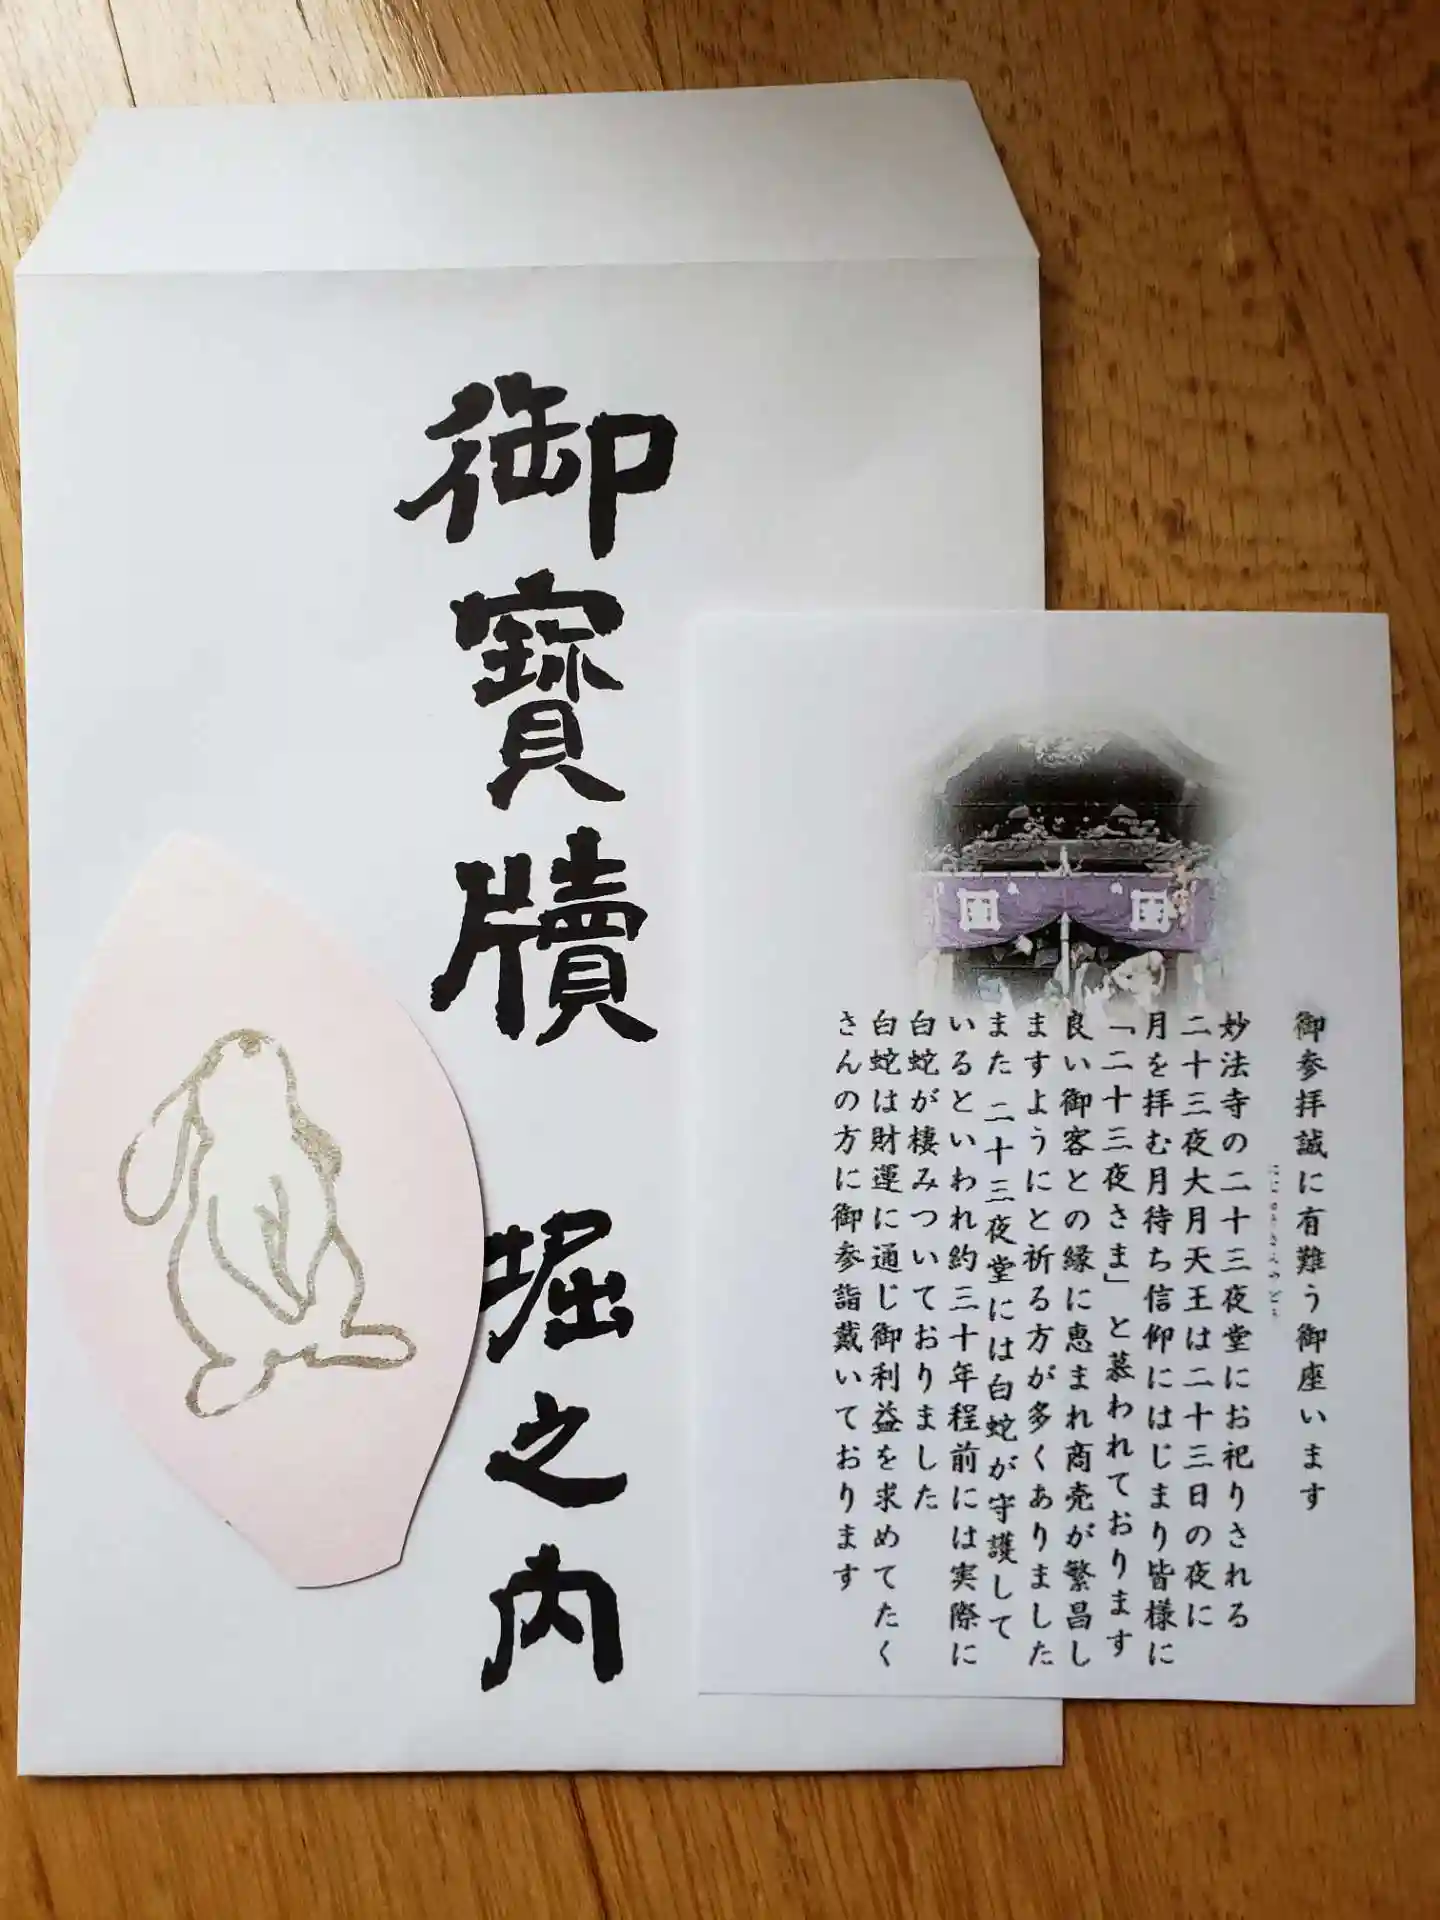 御寶牘 堀之内
御参拝誠に有難う御座います
にじゅうさんやどう
妙法寺の二十三夜堂にお祀りされる
二十三夜大月天王は二十三日の夜に
月を拝む月待ち信仰にはじまり皆様に
「二十三夜さま」と慕われております
良い御客との縁に恵まれ商売が繁昌し
ますようにと祈る方が多くありました
また 二十三夜堂には白蛇が守護して
いるといわれ約三十年程前には実際に
白蛇が棲みついておりました
白蛇は財運に通じ御利益を求めてたく
さんの方に御参詣戴いております